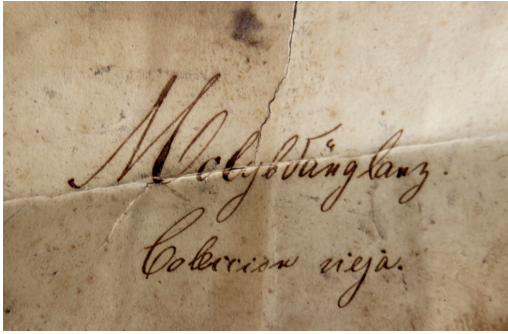 Molybdänglanz.
Coleccion vieja.